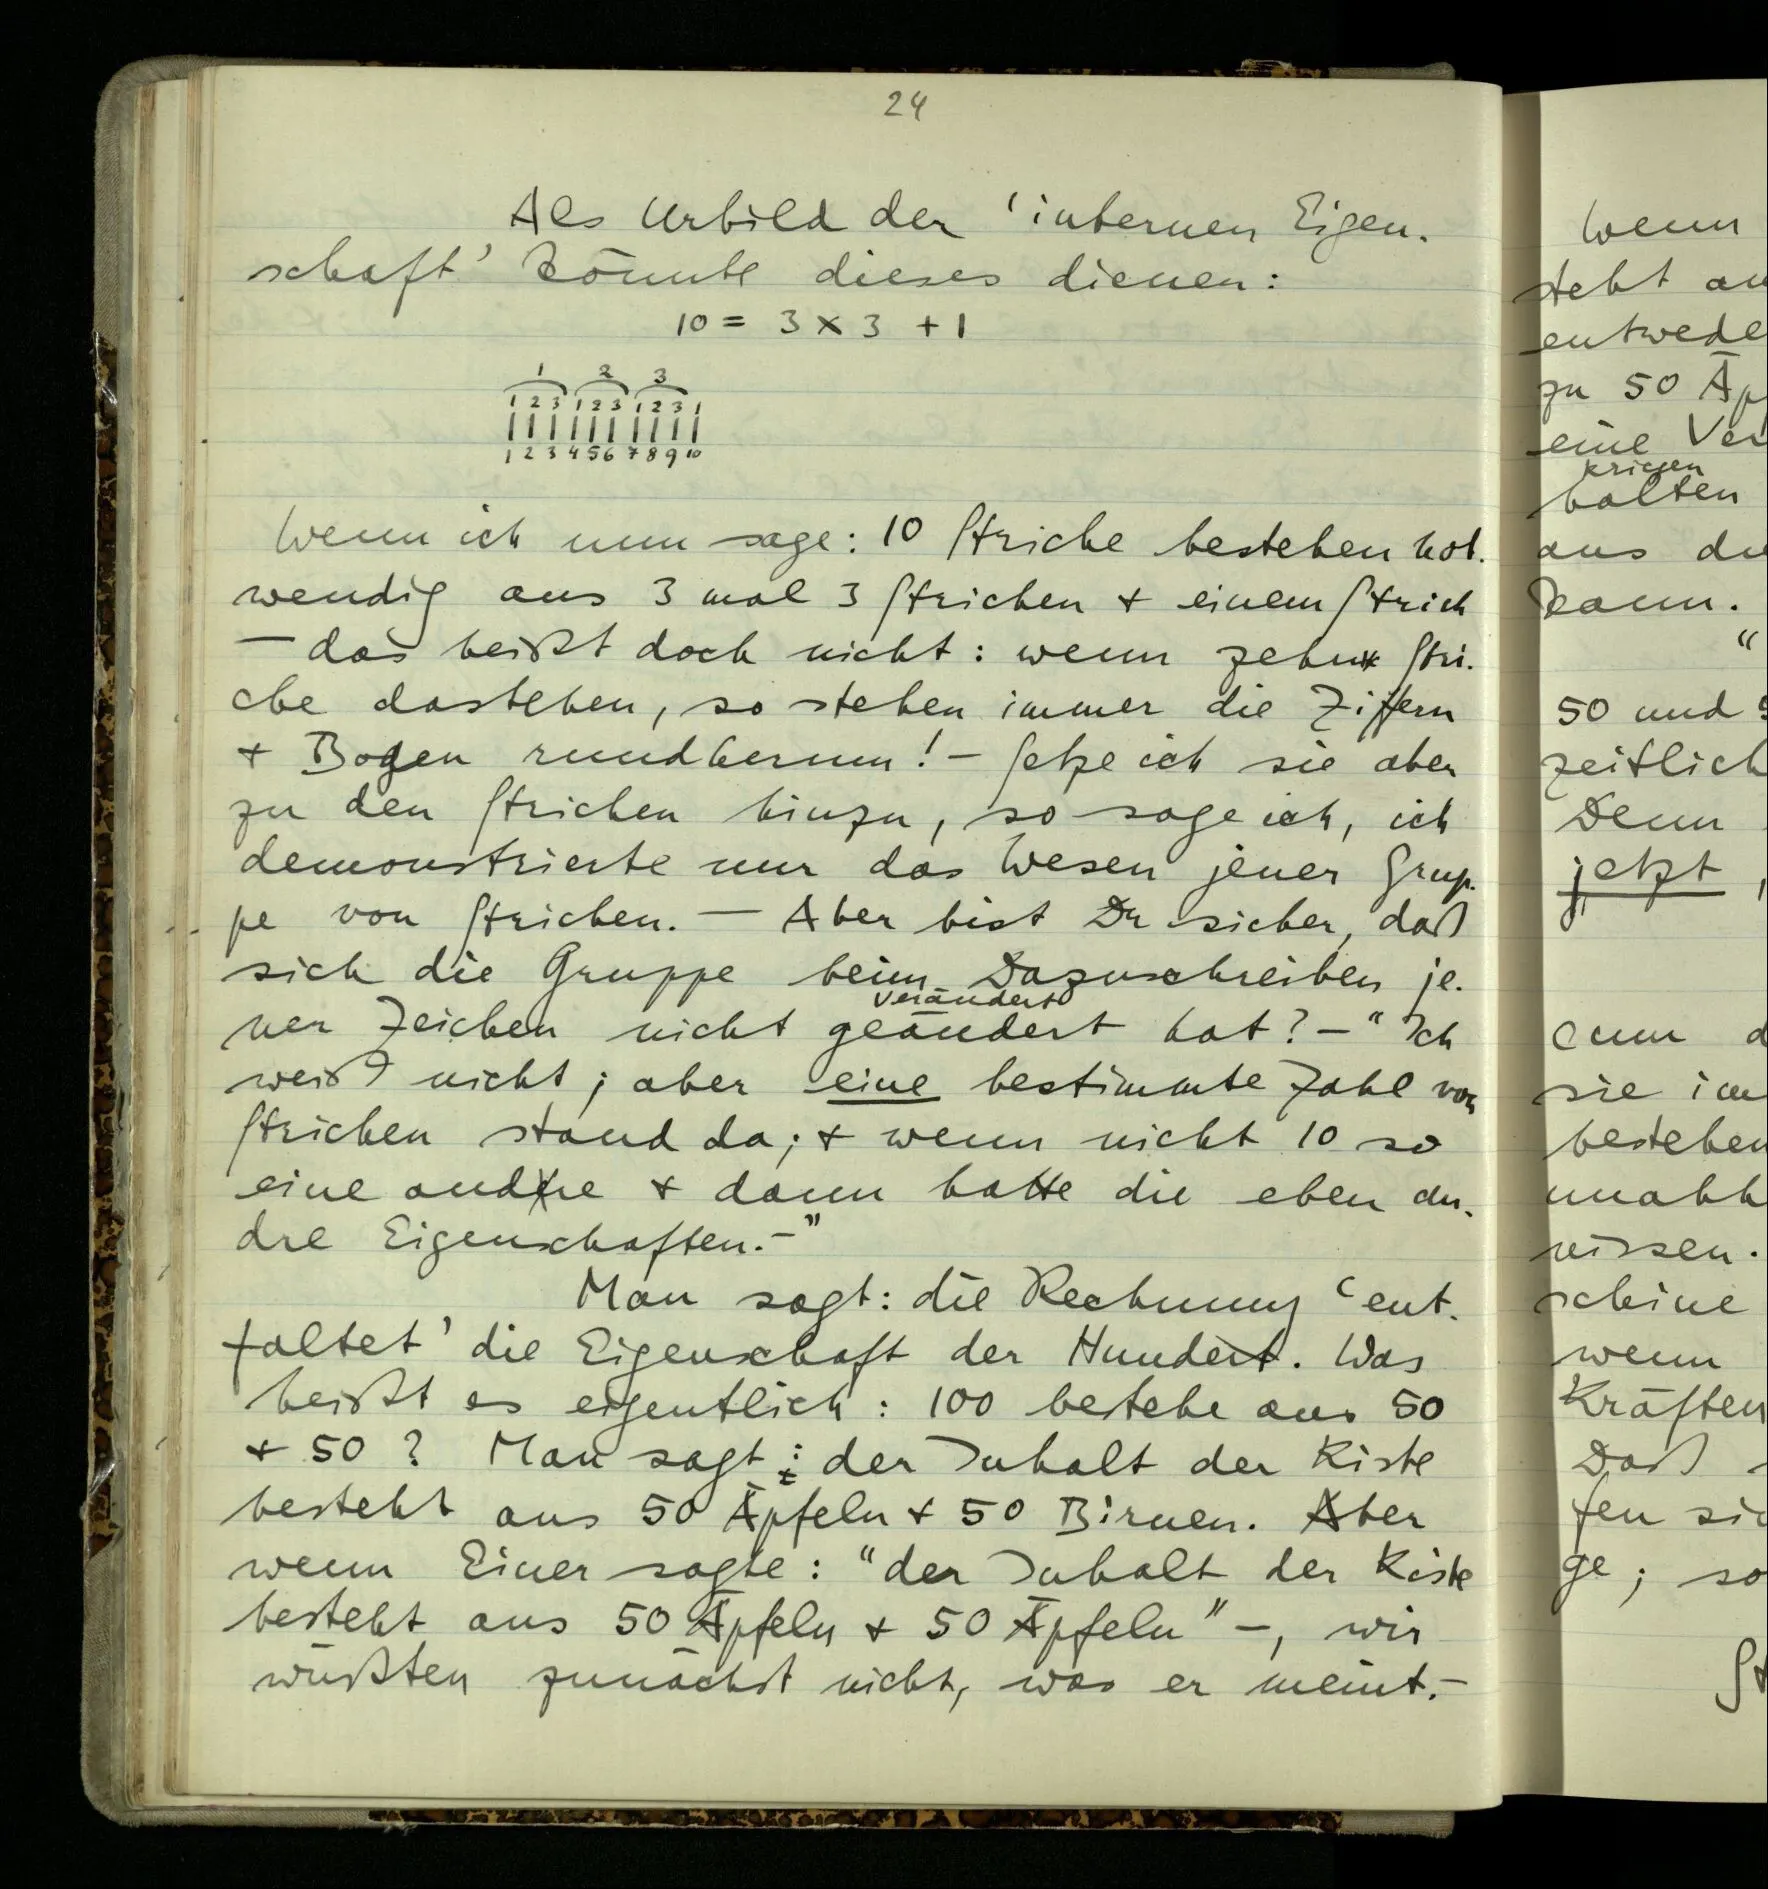 24
Als Urbild der 'internen Eigen-
schaft' könnte dieses dienen:
10 = 3 × 3 + 1
1 2 3
1 2 3 1 2 3 1 2 3 1
| | | | | | | | | |
1 2 3 4 5 6 7 8 9 10
Wenn ich nun sage: 10 Striche bestehen not-
wendig aus 3 mal 3 Strichen + einem Strich
— das heißt doch nicht: wenn zehn Stri-
che dastehen, so stehen immer die Ziffern
+ Bogen rundherum! – Setze ich sie aber
zu den Strichen hinzu, so sage ich, ich
demonstrierte nur das Wesen jener Grup-
pe von Strichen. — Aber bist Du sicher, daß
sich die Gruppe beim Dazuschreiben je-
verändert
ner Zeichen nicht geändert hat? – "Ich
weiß nicht; aber eine bestimmte Zahl von
Strichen stand da; + wenn nicht 10 so
eine andre + dann hatte die eben an-
dre Eigenschaften. –"
Man sagt: die Rechnung 'ent-
faltet' die Eigenschaft der Hundert. Was
heißt es eigentlich: 100 bestehe aus 50
+ 50? Man sagt: der Inhalt der Kiste
besteht aus 50 Äpfeln + 50 Birnen. Aber
wenn Einer sagte: "der Inhalt der Kiste
besteht aus 50 Äpfeln + 50 Äpfeln" –, wir
wüßten zunächst nicht, was er meint. –
Wenn
steht
zu 50
eine
kriegen
halten
aus
kann.
"
50 und
zeitlich
Denn
jetzt,
sie
bestehen
wissen.
wenn
Kräften
Daß
ge; so